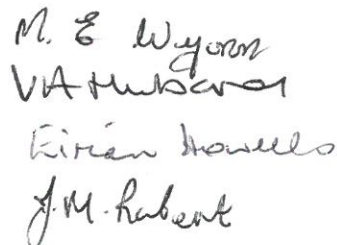 M. E Wynn
VA Hubbard
Eirian Howells
J.M. Rabent